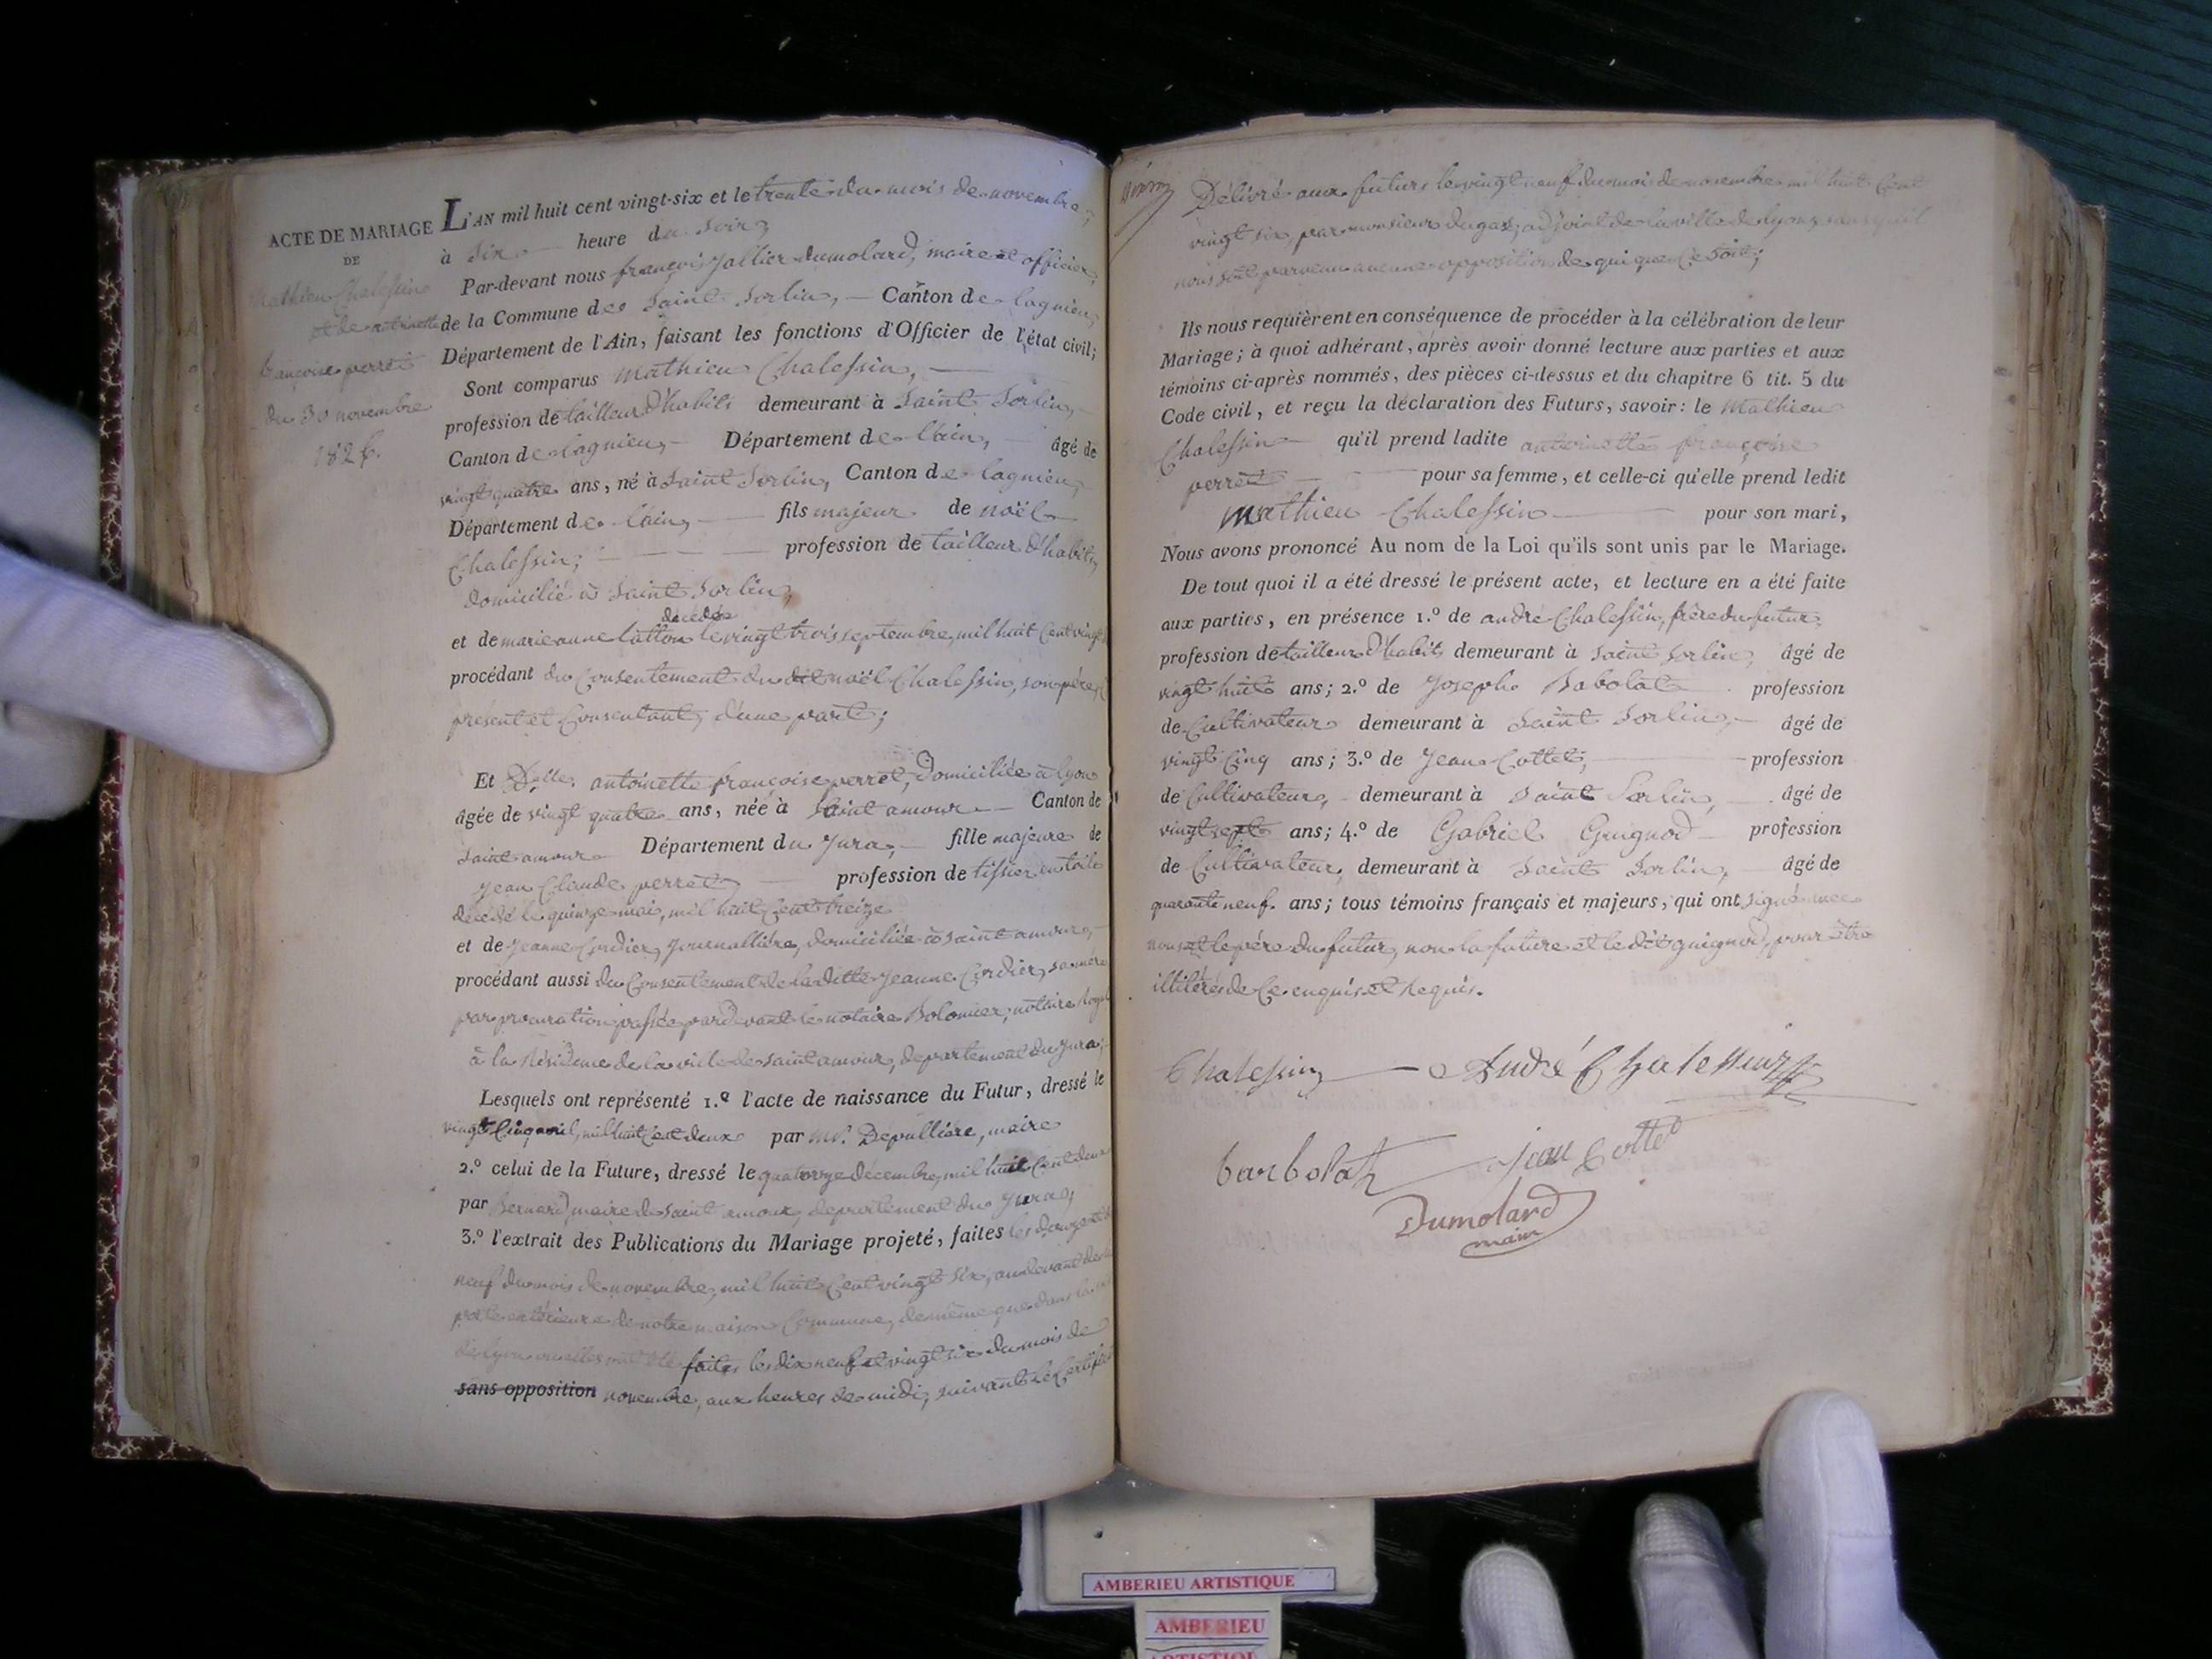 ACTE DE MARIAGE
DE
Mathieu Chalessin
et de antoinette
françoise perret
du 30 novembre
1826.
L'AN mil huit cent vingt-six et le trente du mois de novembre,
à six heure du soir,
Par-devant nous françois Jallier Dumolard, maire et officier,
de la Commune de Saint Sorlin, Canton de lagnieu,
Département de l'Ain, faisant les fonctions d'Officier de l'état civil;
Sont comparus Mathieu Chalessin,
profession de tailleur d'habits demeurant à Saint Sorlin,
Canton de lagnieu, Département de l'ain, âgé de
vingt quatre ans, né à Saint Sorlin, Canton de lagnieu,
Département de l'ain, fils majeur de noël
Chalessin; profession de tailleur d'habits,
domicilié à Saint Sorlin,
décédée
et de marieanne latton le vingt trois septembre, mil huit cent vingt
procédant du Consentement du dit noël Chalessin, son père,
présent et Consentant, d'une part;
Et D.elle antoinette françoise perret, Domiciliée à lyon
âgée de vingt quatre ans, née à Saint amour Canton de
Saint amour Département du Jura, fille majeure de
Jean Claude perret, profession de tissier en toile
décédé le quinze mai, mil huit Cent treize
et de Jeanne Cordier, Journallière, domiciliée à Saint amour,
procédant aussi du Consentement de la ditte Jeanne Cordier, sa mère
par procuration passée pardevant le notaire Bolomier, notaire Royal
à la Résidence de la ville de Saint amour, département du Jura;
Lesquels ont représenté 1.º l'acte de naissance du Futur, dressé le
vingt Cinq avril, mil huit Cent deux par Mr. Depullière, maire
2.º celui de la Future, dressé le quatorze décembre, mil huit Cent deux
par Bernard, maire de Saint amour, département du Jura,
3.º l'extrait des Publications du Mariage projeté, faites les
neuf du mois de novembre, mil huit Cent vingt six, au devant de
porte extérieure de notre maison Commune, de même que dans la
de lyon ou elles ont été faites le dix neuf et vingt six du mois de
sans opposition novembre, aux heures de midi, suivant le Certificat
Délivré aux futurs le vingt neuf du mois de novembre mil huit Cent
vingt six, par monsieur dugas, adjoint de la ville de lyon, sans qu'il
nous soit parvenu aucune opposition de qui que Ce Soit;
Ils nous requièrent en conséquence de procéder à la célébration de leur
Mariage; à quoi adhérant, après avoir donné lecture aux parties et aux
témoins ci-après nommés, des pièces ci-dessus et du chapitre 6 tit. 5 du
Code civil, et reçu la déclaration des Futurs, savoir: le Mathieu
Chalessin qu'il prend ladite antoinette françoise
perret pour sa femme, et celle-ci qu'elle prend ledit
Mathieu Chalessin pour son mari,
Nous avons prononcé Au nom de la Loi qu'ils sont unis par le Mariage.
De tout quoi il a été dressé le présent acte, et lecture en a été faite
aux parties, en présence 1.º de andré Chalessin, frère du futur,
profession de tailleur d'habits demeurant à Saint Sorlin, âgé de
vingt huit ans; 2.º de Joseph Babolat profession
de Cultivateur demeurant à Saint Sorlin, âgé de
vingt Cinq ans; 3.º de Jean Cottet, profession
de Cultivateur, demeurant à Saint Sorlin, âgé de
vingt sept ans; 4.º de Gabriel Guignod profession
de Cultivateur, demeurant à Saint Sorlin, âgé de
quarante neuf. ans; tous témoins français et majeurs, qui ont signé avec
nous et le père du futur, non la future et le dit guignod, pour être
illitérés de Ce enquis et Requis.
Chalessin André Chalessin
barbolat jean Cottet
Dumolard
maire
AMBERIEU ARTISTIQUE
AMBERIEU
ARTISTIQUE